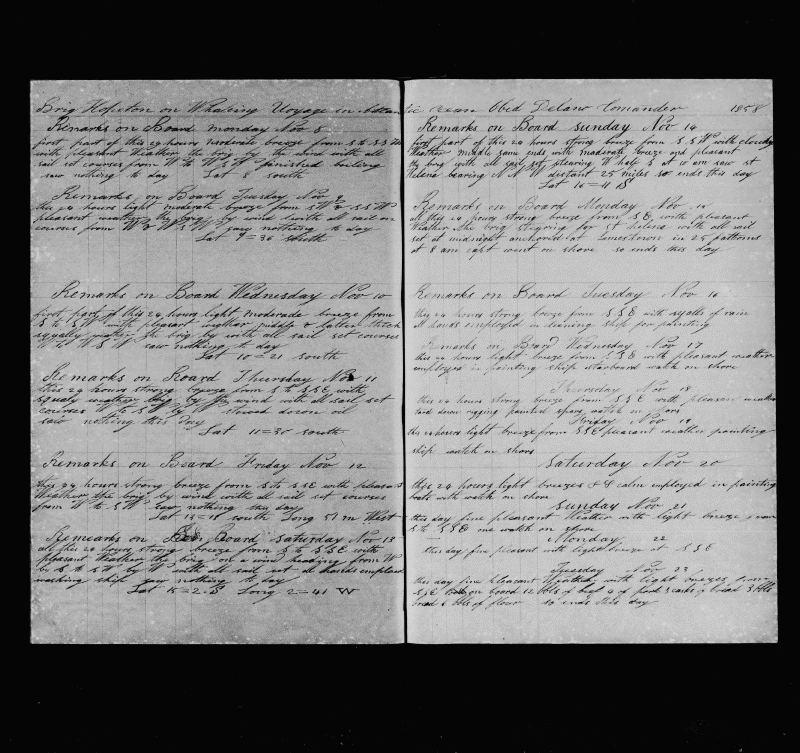 Brig Hopeton on Whaleing Voyage in
Remarks on Board monday Nov 8
first part of this 24 hours moderate breeze from S to S S W
with pleasant Weather the brig by the wind with all
sail set courses from W to W S W finished boileing
saw nothing to day Lat 8 south
Remarks on Board Tuesday Nov 9
this 24 hours light moderate breeze from S W & S S W
pleasant weather the brig by wind with all sail on
courses from W & W S W saw nothing to day
Lat 9=36 south
Remarks on Board Wednesday Nov 10
first part of this 24 hours light moderate breeze from
S to S W with pleasant weather middle & latter
squaly weather the brig by with all sail set courses
W to W S W saw nothing to day
Lat 10=21 south
Remarks on Board Thursday Nov 11
this 24 hours strong breeze from S to S S E with
squaly weather brig by the wind with all sail set
courses W to S W by W stowed down oil
saw nothing this day
Lat 11=30 south
Remarks on Board Friday Nov 12
this 24 hours strong breeze from S to S S E with pleasant
Weather the brig by wind with all sail set courses
from W to S W saw nothing this day
Lat 13=18 south Long West
Remarks on Board saturday Nov 13
all this 24 hours strong breeze from S to S S E with
pleasant Weather the brig on a wind heading from W
to S W by W with all sail set all hands employed
washing ship saw nothing to day
Lat 15=2 S Long 2=41 W
ocean Obed Delano Comander 1858
Remarks on Board sunday Nov 14
first part of this 24 hours strong breeze from S S W with cloudy
Weather middle same ends with moderate breeze and pleasant
the brig with all sail set steering W half S at 10 am saw st
Helena bearing N N W distant 25 miles so ends this day
Lat 16=11 S
Remarks on Board Monday Nov 15
all this 24 hours strong breeze from S E with pleasant
Weather the brig steering for st helena with all sail
set at midnight anchored at Jamestown in 25 fathoms
at 8 am capt went on shore so ends this day
Remarks on Board Tuesday Nov 16
this 24 hours strong breeze from S S E with squalls of rain
all hands employed in cleaning ship for painting
Remarks on Board Wednesday Nov 17
this 24 hours light breeze from S S E with pleasant weather
employed in painting ship starboard watch on shore
Thursday Nov 18
this 24 hours strong breeze from S S E with pleasant weather
tard down rigging painted spars watch on shore
Friday Nov 19
this 24 hours light breeze from S S E pleasant weather painting
ship watch on shore
Saturday Nov 20
this 24 hours light breezes & calm employed in painting
boats with watch on shore
sunday Nov 21
this day fine pleasant Weather with light breeze from
S to S S E one watch on shore
Monday 22
this day fine pleasant with light breeze at S S E
Tuesday Nov 23
this day fine pleasant Weather with light breezes from
S S E on board 12 bbls of beef 4 of pork 3 casks of bread 3 bbls
bread 6 bbls of flour so ends this day